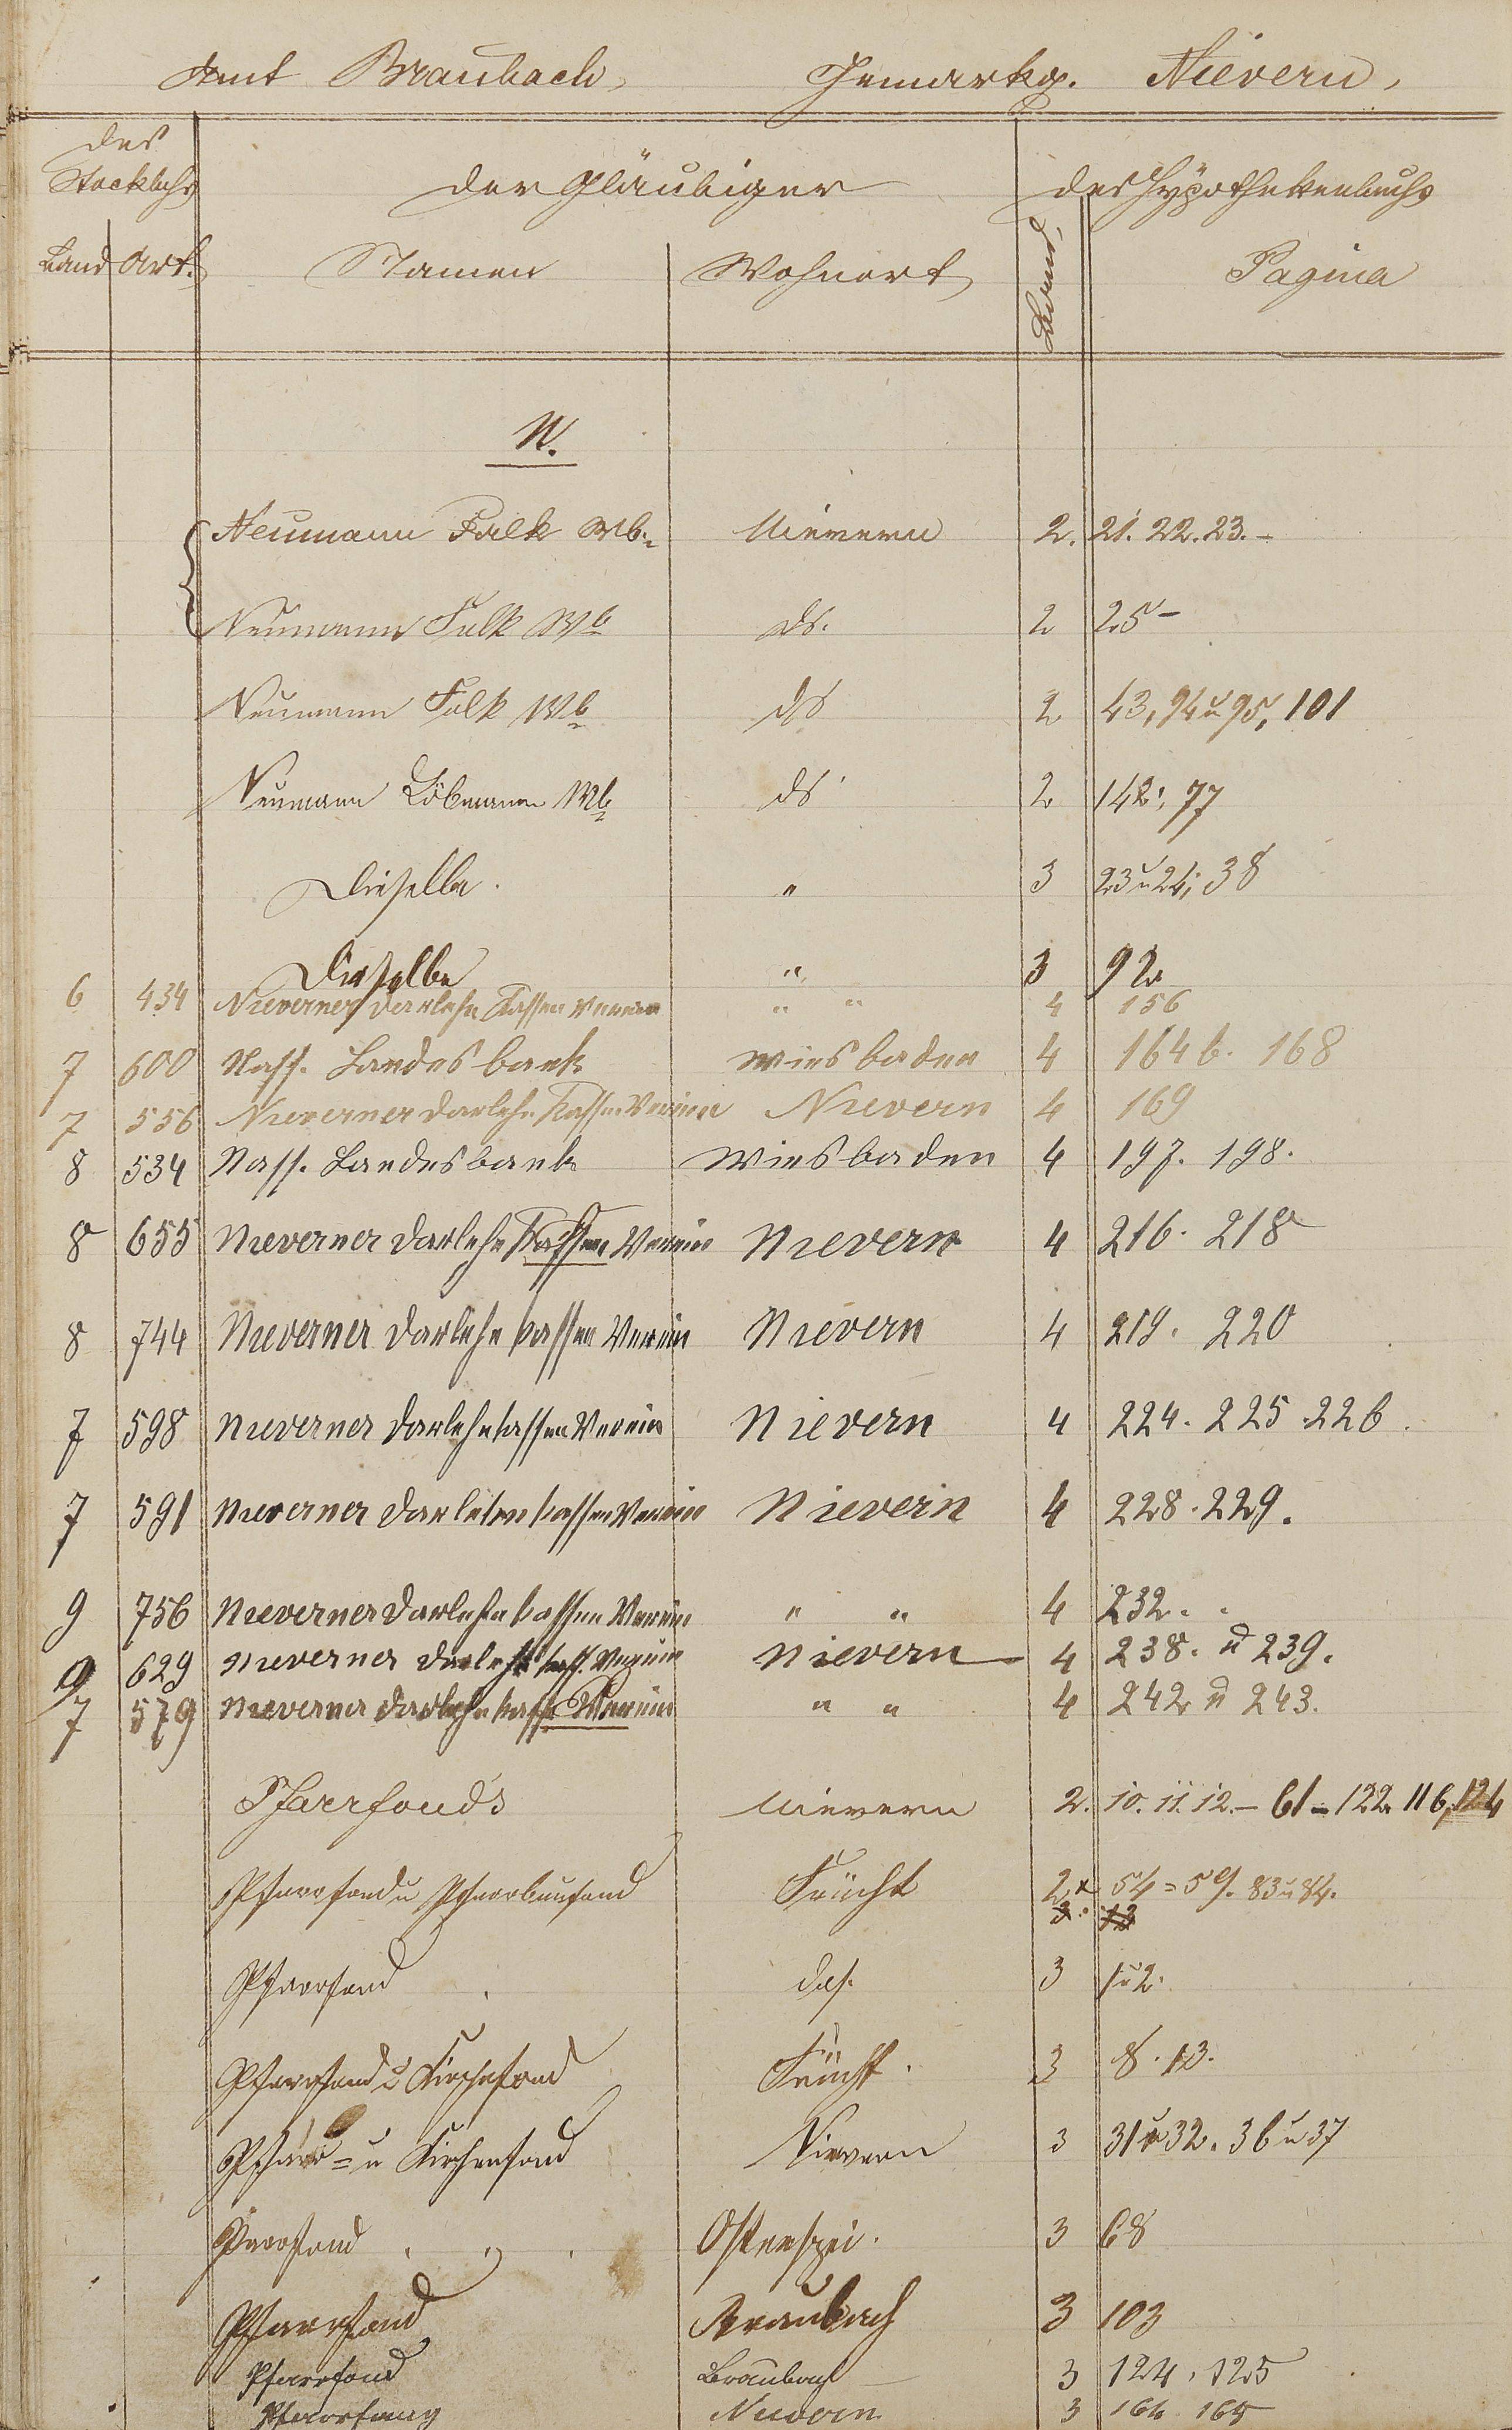 Amt Braubach, Gemarkg. Nievern,
des Stockbuchs der Gläubiger des Hypothekenbuchs
Band Art. Namen Wohnort Band Pagina
N.
Neumann Falk Wb. Nievern 2. 21. 22. 23. –
Neumann Falk Wb ds. 2 25 –
Neumann Falk Wb ds 2 43, 94 u 95, 101
Neumann Löbmann Wb ds 2 142, 77
Dieselbe. " 3 23 u 24, 38
Dieselbe " 3 92
6 434 Nieverner Darlehn Kassen Verein " " 4 156
7 600 Nass. Landesbank Wiesbaden 4 164 b. 168
7 556 Nieverner Darlehn Kassen Verein Nievern 4 169
8 534 Nass. Landesbank Wiesbaden 4 197. 198.
8 655 Nieverner Darlehn Kassen Verein Nievern 4 216. 218
8 744 Nieverner Darlehn kassen Verein Nievern 4 219. 220
7 598 Nieverner Darlehnkassen Verein Nievern 4 224. 225. 226.
7 591 Nieverner Darlehn kassen Verein Nievern 4 228. 229.
9 756 Nieverner Darlehn kassen Verein " " 4 232.
9 629 Nieverner Darlehn kass. Verein Nievern 4 238. u 239.
7 579 Nieverner Darlehn kass Verein " " 4 242 u 243.
Pfarrfonds Nievern 2. 10. 11. 12. – 61 – 122. 116, 124
Pfarrfond u Pfarrbaufond Frücht 2 54 = 59. 83 u 84.
3. 13
Pfarrfond das. 3 1 u 2.
Pfarrfond u Kirchefond Frücht. 3 8. 13.
Pfarr = u Kirchenfond Nievern 3 31 u 32. 36 u 37
Pfarrfond Osterspei. 3 68
Pfarrfond Braubach 3 103
Pfarrfond Braubach 3 124, 125
Nievern 3 165